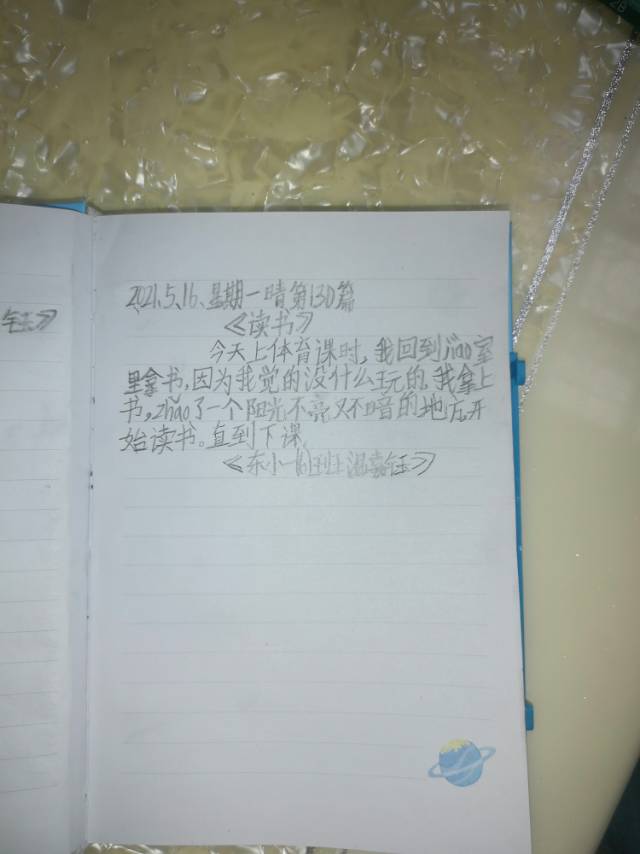 钰》
2021、5、16、星期一晴第130篇
《读书》
今天上体育课时，我回到jiao室
里拿书，因为我觉的没什么玩的。我拿上
书，zhǎo了一个阳光不亮又不暗的地方开
始读书。直到下课。
《东小一 班 钰》